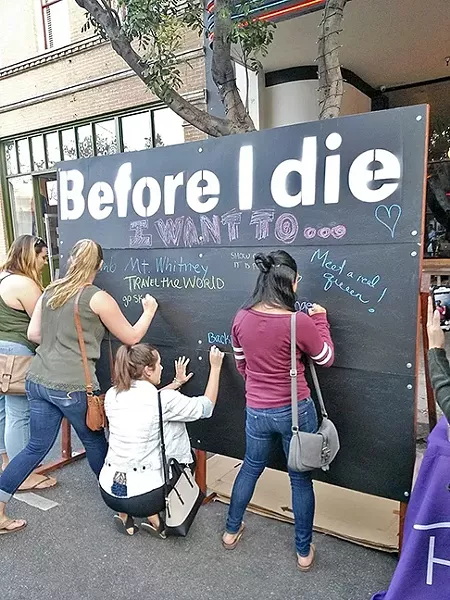 Before I die
I WANT TO...
Mt. Whitney
TRAVEL the WORLD
go sk
SHOW
IT IS
Meet a real
queen!
Back
H